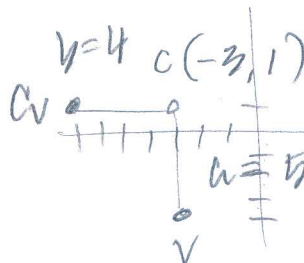 b=4 C(-3,1)
CV
a=5
V